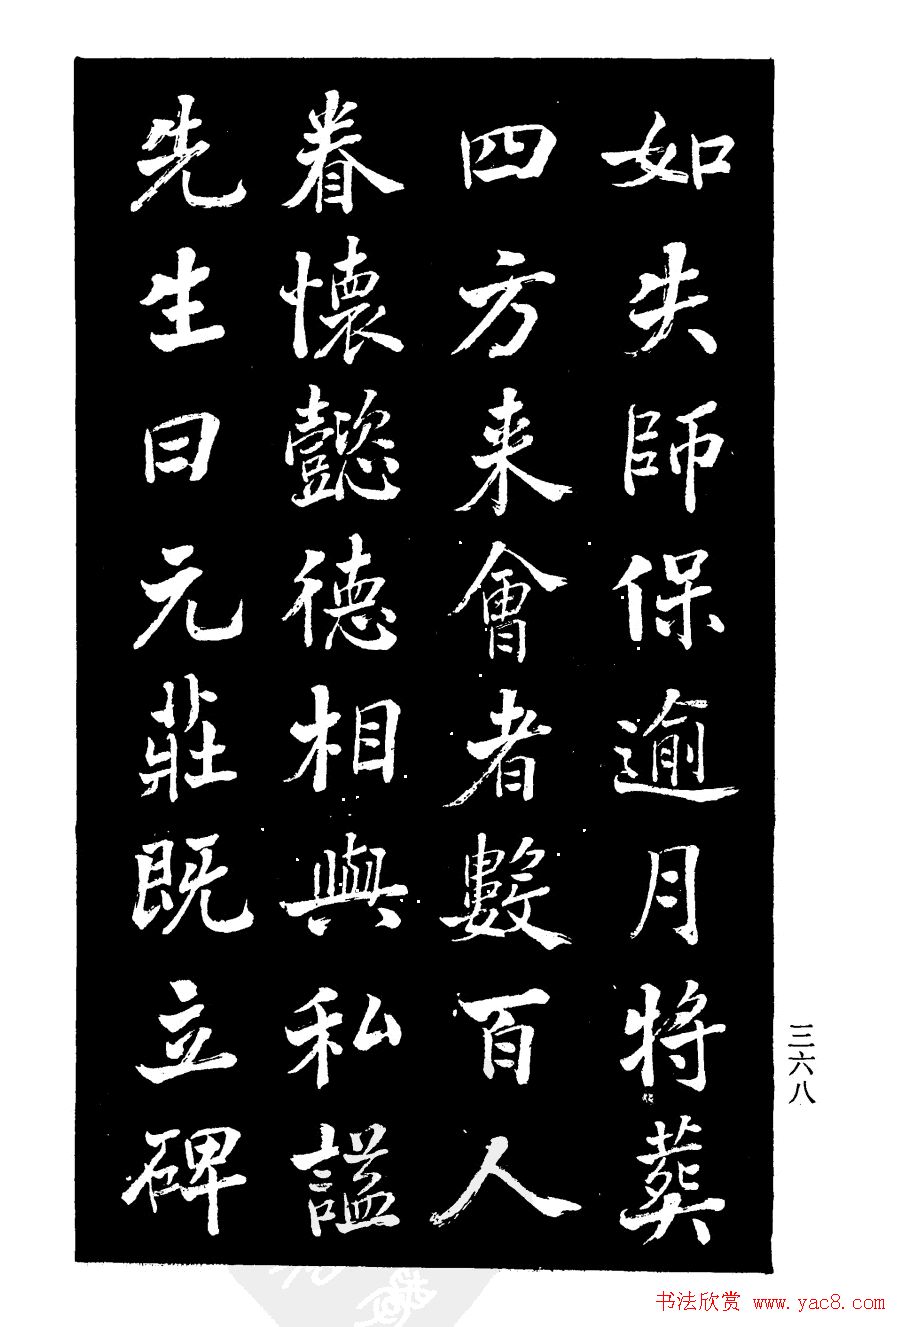 如失師保逾月將葬
四方来會者數百人
眷懷懿德相與私謚
先生曰元莊既立碑
三六八
书法欣赏 www.yac8.com